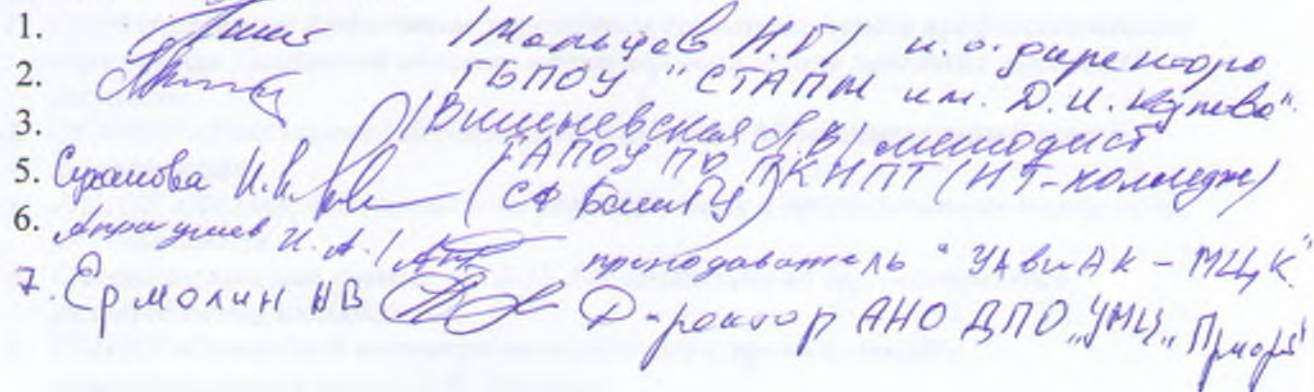 1. /Мальцев Н.Г./ и.о. директора
2. ГБПОУ "СТАПМ им. Д.И. Козлова".
3. /Вишневская Л.В/ методист
ГАПОУ ПО ПКИПТ (ИТ-колледж)
5. Суханова И.И. (СФ
6. Апракушев И. А. / преподаватель "УАвиАК - МЦК"
7. Ермолин НВ Директор АНО ДПО "УМЦ "